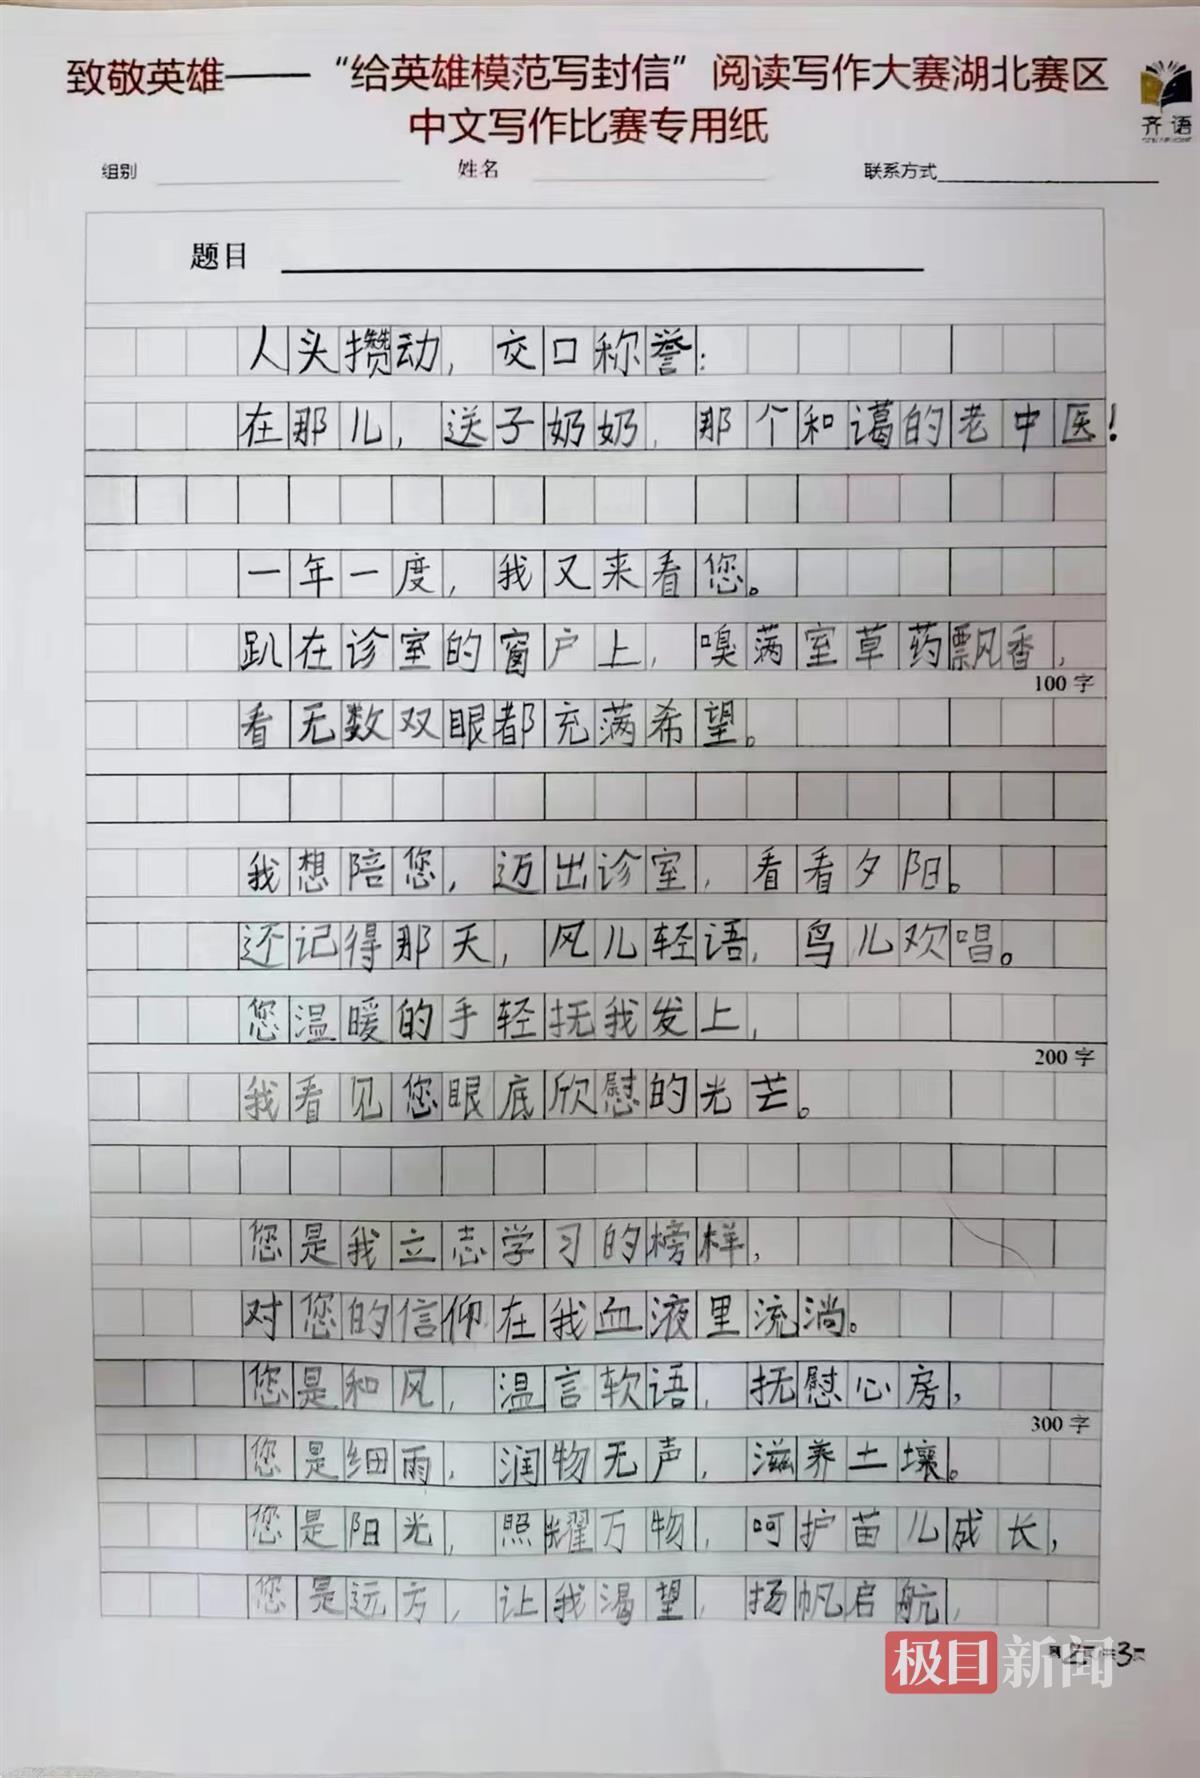 致敬英雄——“给英雄模范写封信”阅读写作大赛湖北赛区
中文写作比赛专用纸
齐语
组别 姓名 联系方式
题目
人头攒动，交口称誉：
在那儿，送子奶奶，那个和蔼的老中医！
一年一度，我又来看您。
趴在诊室的窗户上，嗅满室草药飘香，
100字
看无数双眼都充满希望。
我想陪您，迈出诊室，看看夕阳。
还记得那天，风儿轻语，鸟儿欢唱。
您温暖的手轻抚我发上，
200字
我看见您眼底欣慰的光芒。
您是我立志学习的榜样，
对您的信仰在我血液里流淌。
您是和风，温言软语，抚慰心房，
300字
您是细雨，润物无声，滋养土壤。
您是阳光，照耀万物，呵护苗儿成长，
您是远方，让我渴望，扬帆启航，
极目新闻
3页